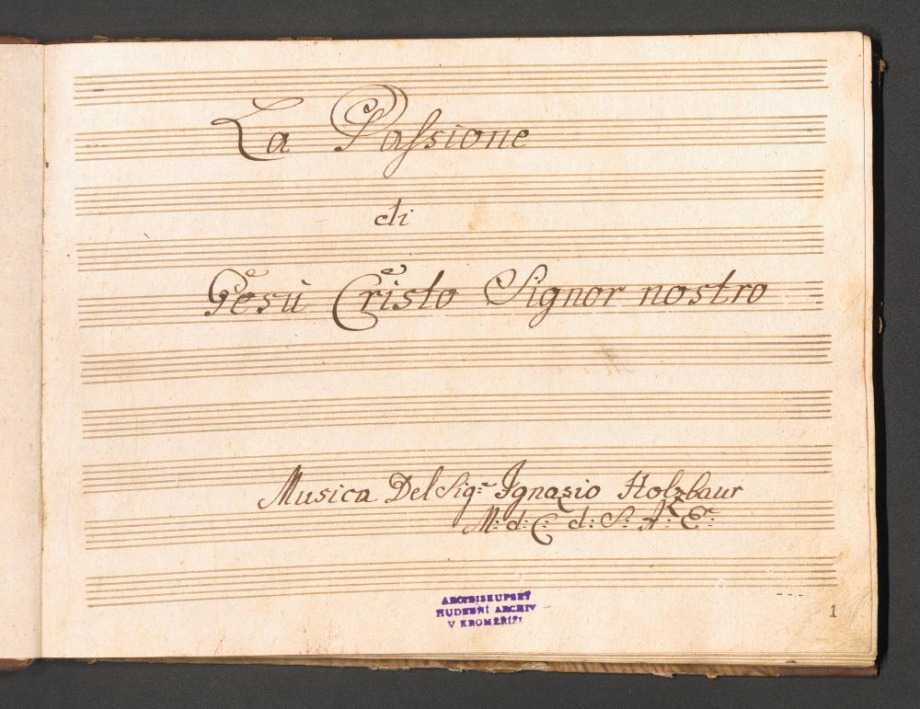 La Passione
di
Gesù Cristo Signor nostro
Musica Del Sig:r Ignazio Holzbaur
M: d: C: d: S: A: E:
ARCIBISKUPSKÝ
HUDEBNÍ ARCHIV
V KROMĚŘÍŽI
1